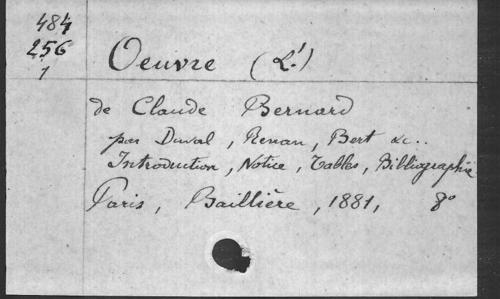 484
256
1
Oeuvre (L')
de Claude Bernard
par Duval, Renan, Bert &c..
Introduction, Notice, Tables, Bibliographie
Paris, Baillière, 1881, 8°